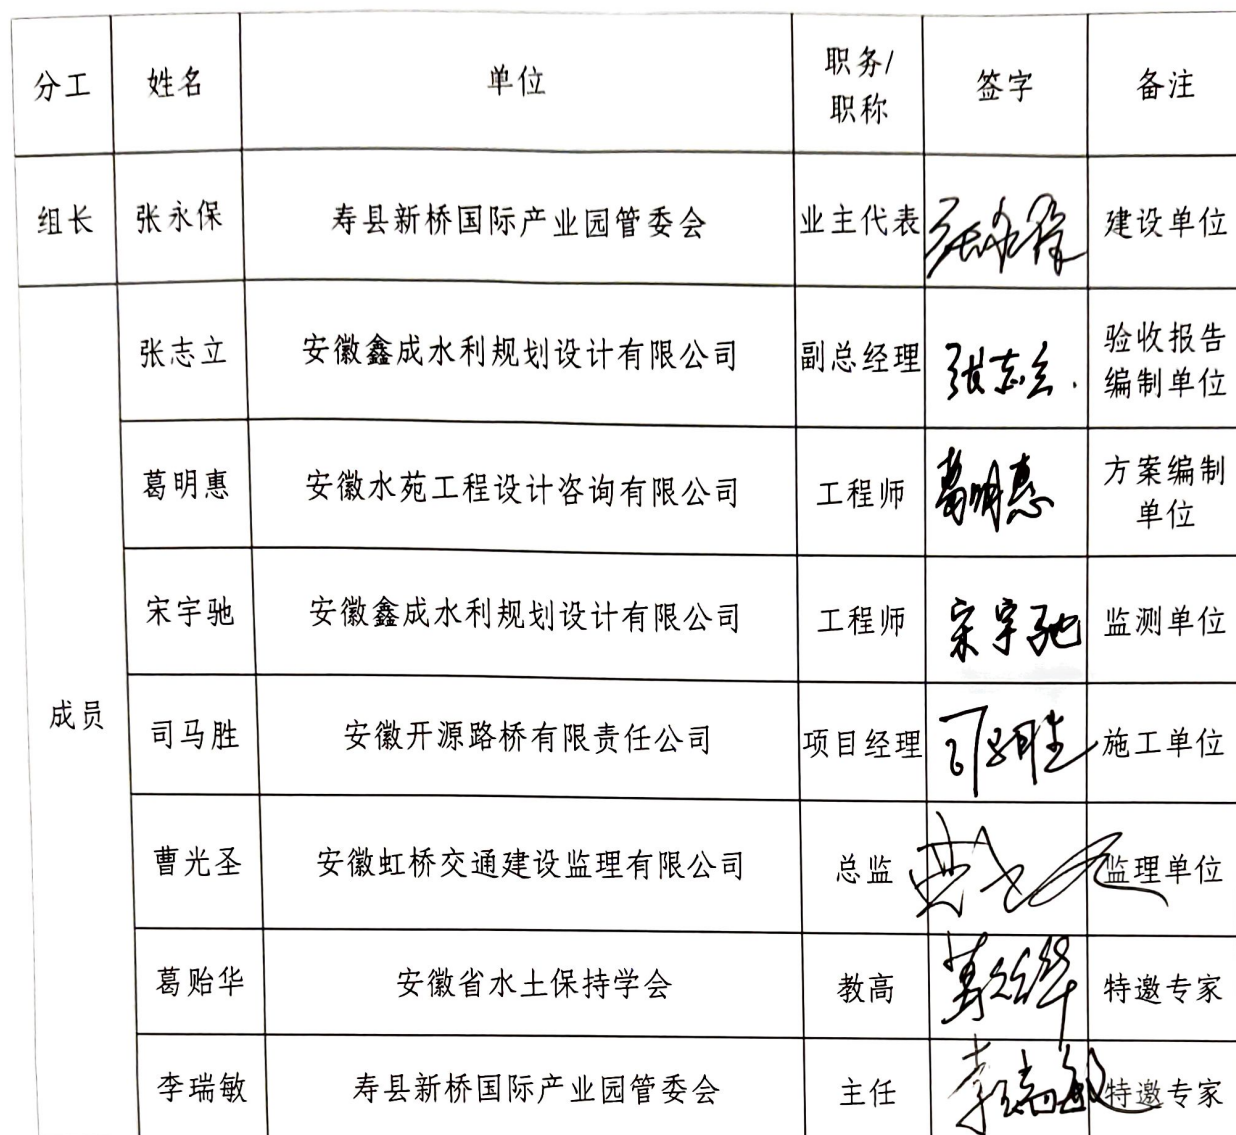 分工 姓名 单位 职务/职称 签字 备注
组长 张永保 寿县新桥国际产业园管委会 业主代表 张永保 建设单位
成员
张志立 安徽鑫成水利规划设计有限公司 副总经理 张志立 验收报告编制单位
葛明惠 安徽水苑工程设计咨询有限公司 工程师 葛明惠 方案编制单位
宋宇驰 安徽鑫成水利规划设计有限公司 工程师 宋宇驰 监测单位
司马胜 安徽开源路桥有限责任公司 项目经理 司马胜 施工单位
曹光圣 安徽虹桥交通建设监理有限公司 总监 监理单位
葛贻华 安徽省水土保持学会 教高 葛贻华 特邀专家
李瑞敏 寿县新桥国际产业园管委会 主任 李瑞敏 特邀专家